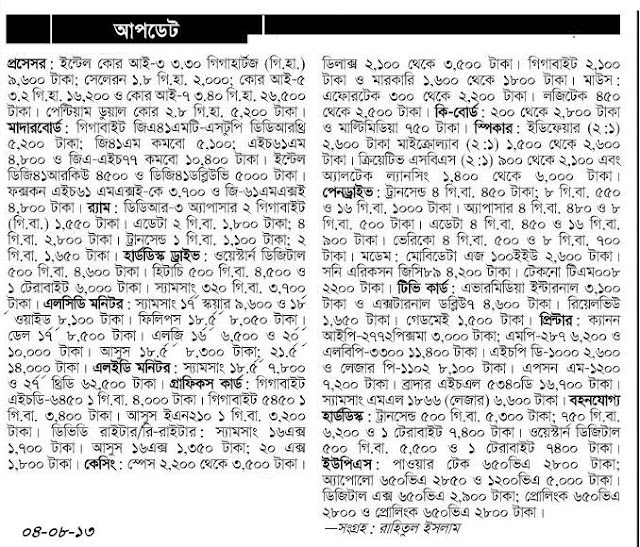 আপডেট
প্রসেসর : ইন্টেল কোর আই-৩ ৩.৩০ গিগাহার্টজ (গি.হা.)
৯,৬০০ টাকা; সেলেরন ১.৮ গি.হা. ২,০০০; কোর আই-৫
৩.২ গি.হা. ১৬,২০০ ও কোর আই-৭ ৩.৪০ গি.হা. ২৬,৫০০
টাকা। পেন্টিয়াম ডুয়াল কোর ২.৮ গি.হা. ৫,২০০ টাকা।
মাদারবোর্ড : গিগাবাইট জিএ৪১এমটি-এসটুপি ডিডিআরথ্রি
৫,২০০ টাকা; জি৪১এম কমবো ৫,১০০; এইচ৬১এম
৪,৮০০ ও জিএ-এইচ৭৭ কমবো ১০,৪০০ টাকা। ইন্টেল
ডিজি৪১আরকিউ ৪৫০০ ও ডিজি৪১ডব্লিউভি ৫০০০ টাকা।
ফক্সকন এইচ৬১ এমএক্সই-কে ৩,৭০০ ও জি-৬১এমএক্সই
৪,৮০০ টাকা। র‍্যাম : ডিডিআর-৩ অ্যাপাসার ২ গিগাবাইট
(গি.বা.) ১,৫৫০ টাকা। এডেটা ২ গি.বা. ১,৮০০ টাকা; ৪
গি.বা. ২,৮০০ টাকা। ট্রানসেন্ড ১ গি.বা. ১,১০০ টাকা; ২
গি.বা. ১,৬৫০ টাকা। হার্ডডিস্ক ড্রাইভ : ওয়েস্টার্ন ডিজিটাল
৫০০ গি.বা. ৪,৬০০ টাকা। হিটাচি ৫০০ গি.বা. ৪,৫০০ ও
১ টেরাবাইট ৬,০০০ টাকা। স্যামসাং ৩২০ গি.বা. ৩,৭০০
টাকা। এলসিডি মনিটর : স্যামসাং ১৭˝ স্কয়ার ৯,৬০০ ও ১৮
˝ ওয়াইড ৮,১০০ টাকা। ফিলিপস ১৮.৫˝ ৮,০৫০ টাকা।
ডেল ১৭˝ ৮,৫০০ টাকা। এলজি ১৬˝ ৬,৫০০ ও ২০˝
১০,০০০ টাকা। আসুস ১৮.৫˝ ৮,৩০০ টাকা; ২১.৫˝
১৪,০০০ টাকা। এলইডি মনিটর : স্যামসাং ১৮.৫˝ ৭,৮০০
ও ২৭˝ থ্রিডি ৬২,৫০০ টাকা। গ্রাফিকস কার্ড : গিগাবাইট
এইচডি-৬৪৫০ ১ গি.বা. ৪,০০০ টাকা। গিগাবাইট ৫৪৫০ ১
গি.বা. ৩,৪০০ টাকা। আসুস ইএন২১০ ১ গি.বা. ৩,২০০
টাকা। ডিভিডি রাইটার/রি-রাইটার : স্যামসাং ১৬এক্স
১,৭০০ টাকা। আসুস ১৬এক্স ১,৩৫০ টাকা; ২০ এক্স
১,৮০০ টাকা। কেসিং : স্পেস ২,২০০ থেকে ৩,৫০০ টাকা।
ডিলাক্স ২,১০০ থেকে ৩,৫০০ টাকা। গিগাবাইট ২,১০০
টাকা ও মারকারি ১,৬০০ থেকে ১৮০০ টাকা। মাউস :
এফোরটেক ৩০০ থেকে ২,২০০ টাকা। লজিটেক ৪৫০
থেকে ২,৫০০ টাকা। কি-বোর্ড : ২০০ থেকে ২,৮০০ টাকা
ও মাল্টিমিডিয়া ৭৫০ টাকা। স্পিকার : ইডিফেয়ার (২:১)
২,৬০০ টাকা মাইক্রোল্যাব (২:১) ১,৫০০ থেকে ২,৬০০
টাকা। ক্রিয়েটিভ এসবিএস (২:১) ৯০০ থেকে ২,১০০ এবং
অ্যালটেক ল্যানসিং ১,৪০০ থেকে ৬,০০০ টাকা।
পেনড্রাইভ : ট্রানসেন্ড ৪ গি.বা. ৪৫০ টাকা; ৮ গি.বা. ৫৫০
ও ১৬ গি.বা. ১০০০ টাকা। অ্যাপাসার ৪ গি.বা. ৪৮০ ও ৮
গি.বা. ৫০০ টাকা। এডেটা ৪ গি.বা. ৪৫০ ও ১৬ গি.বা.
৯০০ টাকা। ভেরিকো ৪ গি.বা. ৫০০ ও ৮ গি.বা. ৭০০
টাকা। মডেম : মোবিডেটা এজ ১০০ইইউ ২,৬০০ টাকা।
সনি এরিকসন জিসি৮৯ ৪,২০০ টাকা। টেকনো টিএম০০৮
২২০০ টাকা। টিভি কার্ড : এভারমিডিয়া ইন্টারনাল ৩,১০০
টাকা ও এক্সটারনাল ডব্লিউ৭ ৪,৬০০ টাকা। রিয়েলভিউ
১,৬৫০ টাকা। গেডমেই ১,৫০০ টাকা। প্রিন্টার : ক্যানন
আইপি-২৭৭২পিক্সমা ৩,০০০ টাকা; এমপি-২৮৭ ৬,২০০ ও
এলবিপি-৩৩০০ ১১,৪০০ টাকা। এইচপি ডি-১০০০ ২,৬০০
ও লেজার পি-১১০২ ৮,১০০ টাকা। এপসন এম-১২০০
৭,২০০ টাকা। ব্রাদার এইচএল ৫৩৪০ডি ১৬,৭০০ টাকা।
স্যামসাং এমএল ১৮৬৬ (লেজার) ৬,৬০০ টাকা। বহনযোগ্য
হার্ডডিস্ক : ট্রানসেন্ড ৫০০ গি.বা. ৫,৩০০ টাকা; ৭৫০ গি.বা.
৬,২০০ ও ১ টেরাবাইট ৭,৪০০ টাকা। ওয়েস্টার্ন ডিজিটাল
৫০০ গি.বা. ৫,৫০০ ও ১ টেরাবাইট ৭৪০০ টাকা।
ইউপিএস : পাওয়ার টেক ৬৫০ভিএ ২৮০০ টাকা;
অ্যাপোলো ৬৫০ভিএ ২৮৫০ ও ১২০০ভিএ ৫,০০০ টাকা।
ডিজিটাল এক্স ৬৫০ভিএ ২,৯০০ টাকা; প্রোলিংক ৬৫০ভিএ
২৮০০ ও প্রোলিংক ৬৫০ভিএ ২৮০০ টাকা।
—সংগ্রহ : রাহিতুল ইসলাম
০৪-০৮-১৩